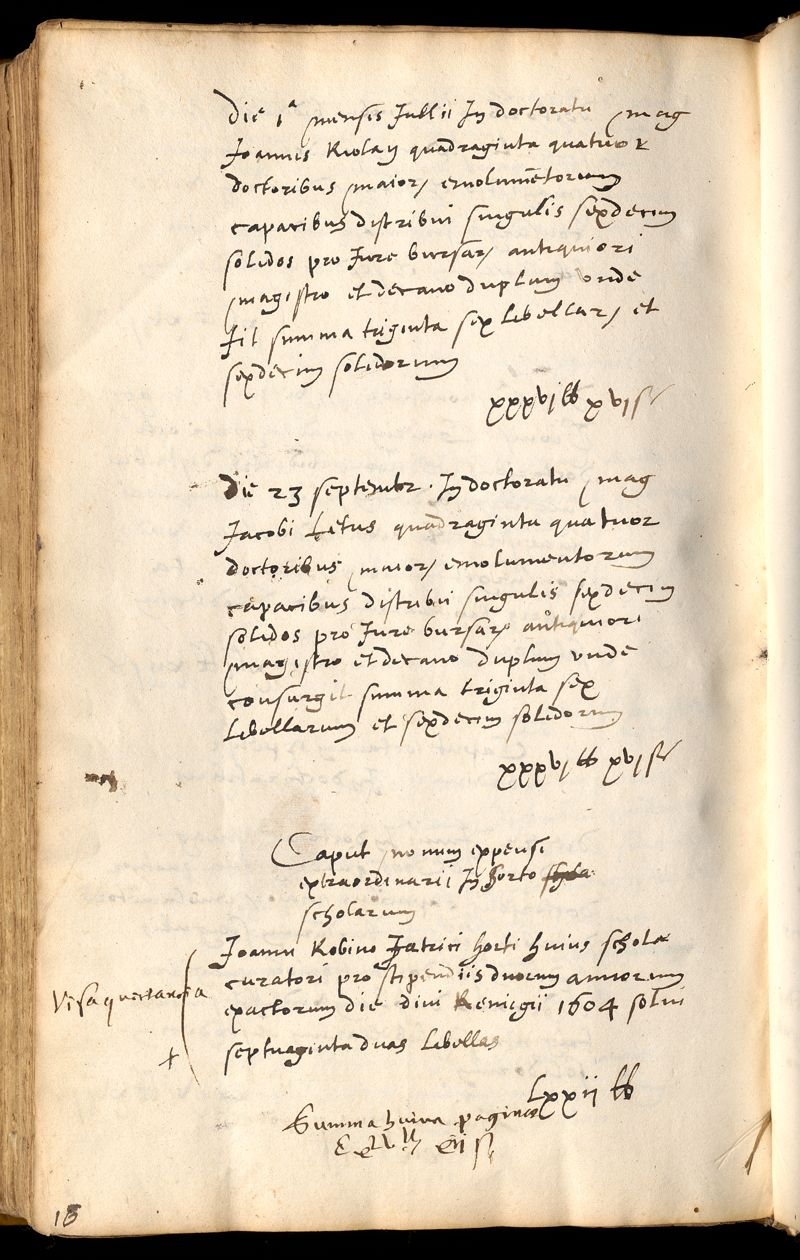 Die 1a mensis Jullii In doctoratu mag
Joannis Riolan quadraginta quatuor
doctoribus maior, emolumetorum
capacibus distribui singulis sexdecim
solidos pro Jure bursar, antiquiori
magistro et decano duplum unde
fit summa triginta sex libellar, et
sexdecim solidorum
xxxvi lb xvi s
Die 23 septembr. In doctoratu mag
Jacobi Letus quadraginta quatuor
doctoribus maior, emolumentorum
capacibus distribui singulis sexdecim
solidos pro Jure bursar, antiquiori
magistro et decano duplum unde
consurgit summa triginta sex
libellarum et sexdecim solidorum
xxxvi lb xvi s
Caput nonum expensi
extraordinarii In horto
scholarum
Joanni Robino horti huius scholae
curatori pro stipendiis duorum annorum
exactorum die divi Remigii 1604 solui
septuaginta duas libellas
Visa quectancia
+
Lxxii lb
Summa huius paginae
18